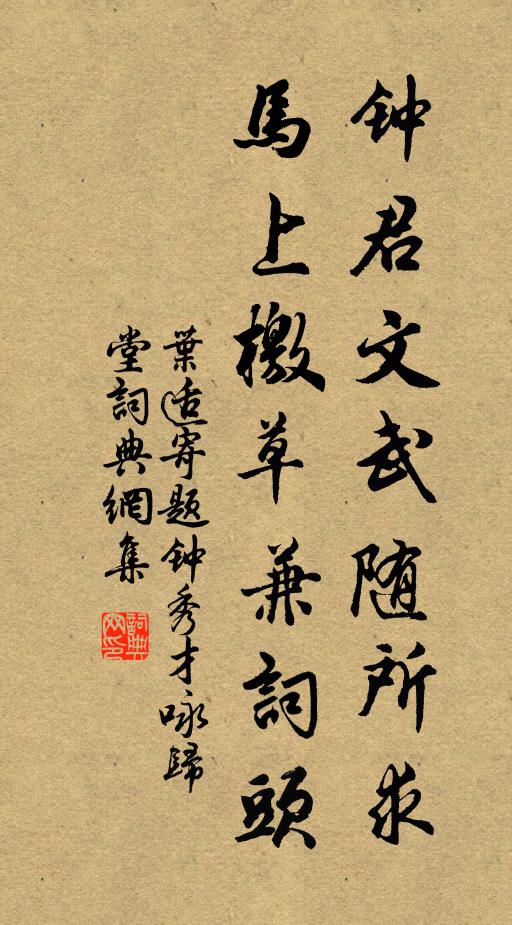 钟君文武随所求
馬上檄草兼詞頭
葉适寄题钟秀才咏歸
堂詞典網集
詞典网印